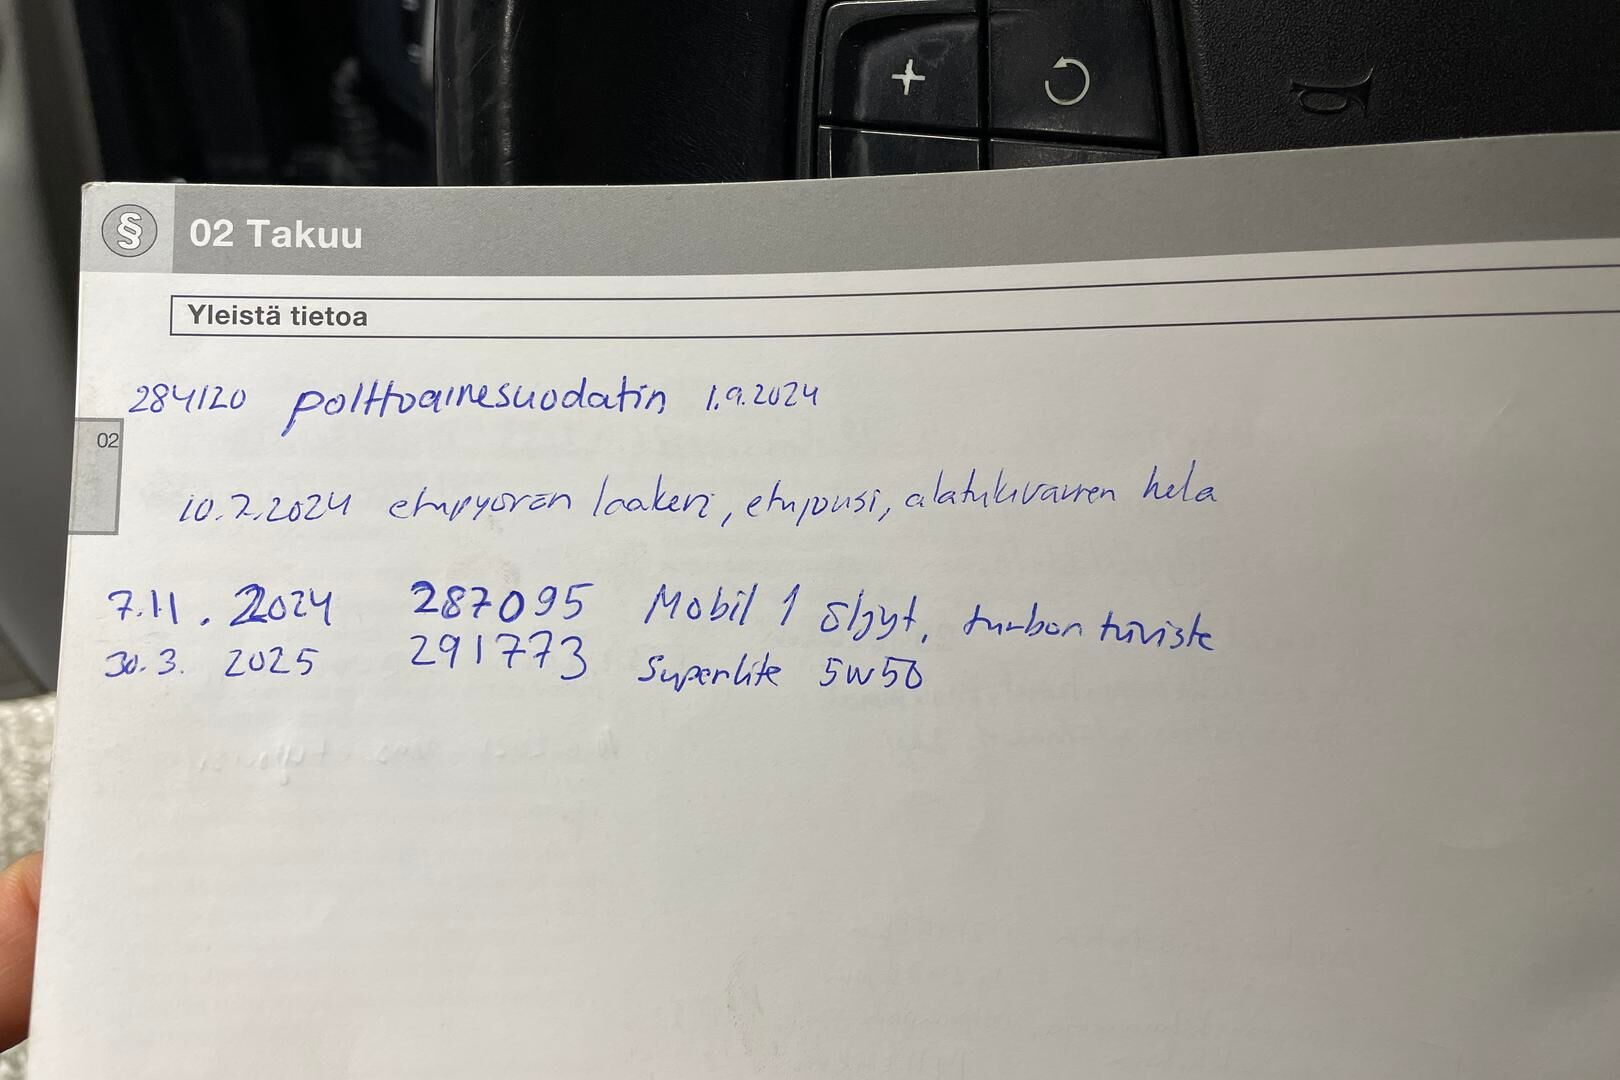 § 02 Takuu
Yleistä tietoa
284120 polttoainesuodatin 1.9.2024
02
10.7.2024 etupyörän laakeri, etujousi, alatukivarren hela
7.11.2024 287095 Mobil 1 öljyt, turbon tiiviste
30.3. 2025 291773 Superlite 5W50